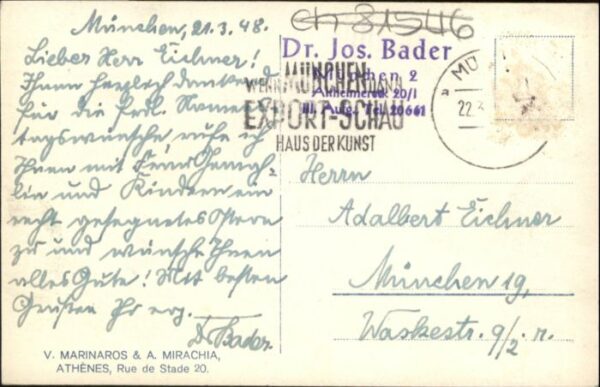 ch 81546
München, 21.3.48.
Lieber Herr Eichner!
Ihnen herzlich dankend
für die frdl. Namens-
tagswünsche, rufe ich
Ihnen mit Frau Gemah-
lin und Kindern ein
recht gesegnetes Ostern
zu und wünsche Ihnen
alles Gute! Mit besten
Grüßen Ihr erg.
Dr Bader
V. MARINAROS & A. MIRACHIA,
ATHÈNES, Rue de Stade 20.
Dr. Jos. Bader
München 2
20/1
Tel. 20661
WENN MÜNCHEN DANN
EXPORT-SCHAU
HAUS DER KUNST
MÜ
22.
Herrn
Adalbert Eichner
München 19,
Waskestr. 9/2. r.